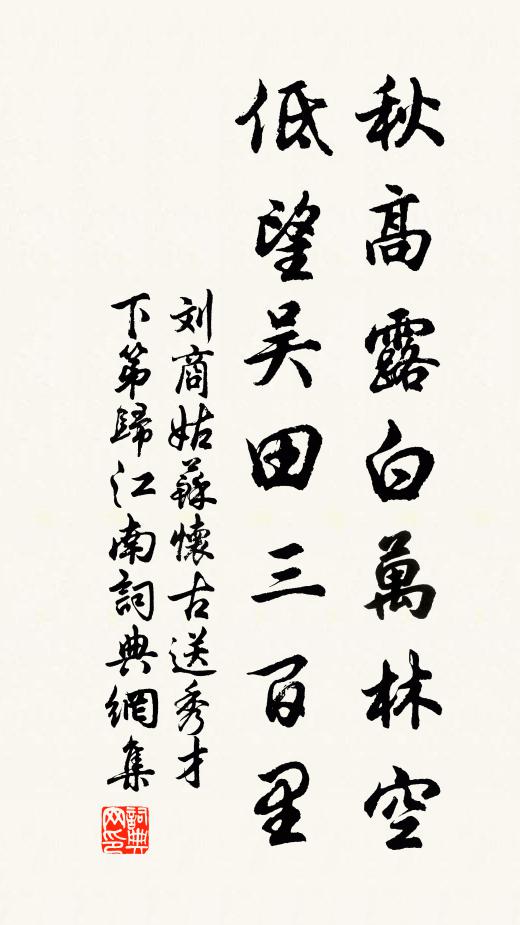 秋高露白萬林空
低望吴田三百里
刘商姑蘇懷古送秀才
下第歸江南詞典網集
詞典
网印